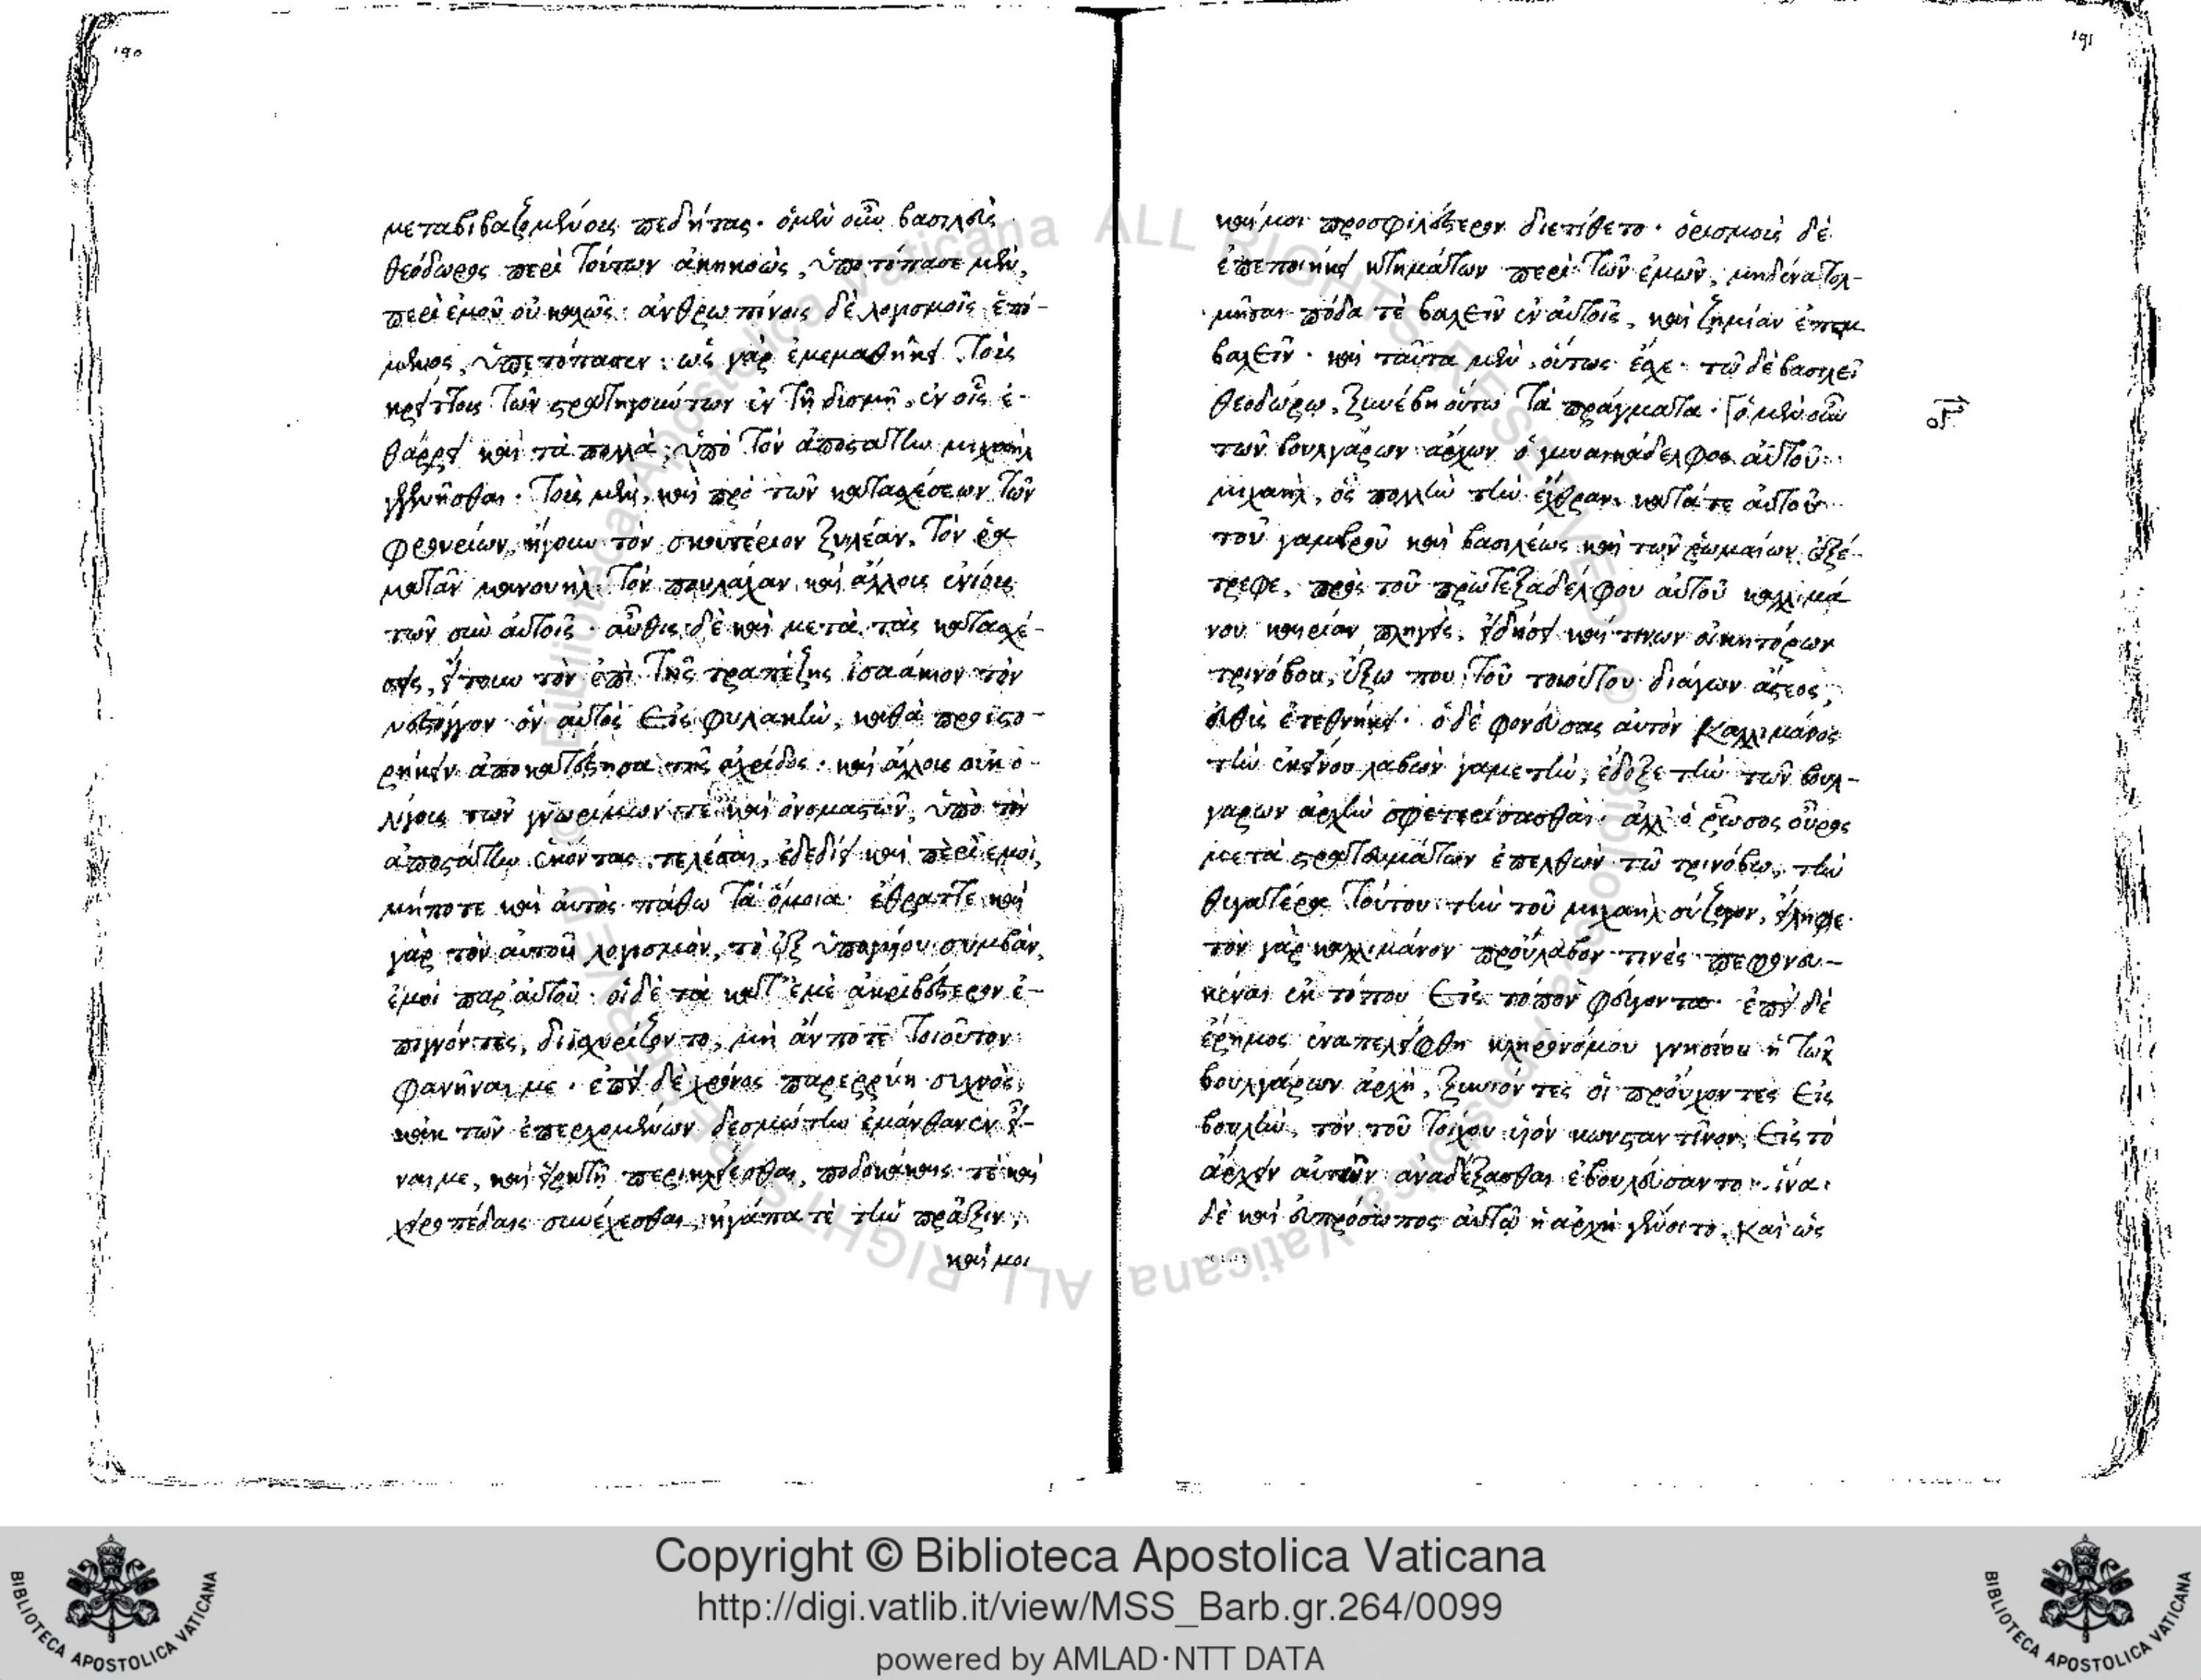 190
μεταβιβαζομένους πεδήτας. ὁ μὲν οὖν βασιλεὺς
θεόδωρος περὶ τούτων ἀκηκοὼς, ὑπετόπασε μὲν,
περὶ ἐμοῦ οὐ καλῶς. ἀνθρωπίνοις δὲ λογισμοῖς ἑπό-
μενος, ὑπετόπασεν. ὡς γὰρ ἐμεμαθήκει τοὺς
κρείττους τῶν στρατηγούντων ἐν τῇ δύσμῃ, ἐν οἷς ἐ-
θάρρει καὶ τὰ πολλὰ, ὑπὸ τὸν ἀποστάτην μιχαὴλ
γενέσθαι. τοὺς μὲν, καὶ πρὸ τῶν κατασχέσεων τῶν
φρουρίων, ἤγουν τὸν σκουτέριον ξυλέαν, τὸν ῥα
ματᾶν μανουὴλ. τὸν πουλαχαν, καὶ ἄλλους ἐνίους
τῶν σὺν αὐτοῖς. αὖθις δὲ καὶ μετὰ τὰς κατασχέ-
σεις, ἤτουν τὸν ἐπὶ τῆς τραπέζης ἰσαάκιον τὸν
νεστόγγον ὃν αὐτὸς εἰς φυλακὴν, καθὰ προιστο-
ρήκειν ἀποκατέστησα τῆς ἀχρίδος. καὶ ἄλλους οὐκ ὀ-
λίγους τῶν γνωρίμων τὲ καὶ ὀνομαστῶν, ὑπὸ τὸν
ἀποστάτην ἑκόντας τελέσαι, ἐδεδίει καὶ περὶ ἐμοὶ,
μήποτε καὶ αὐτὸς πάθω τὰ ὅμοια. ἔθραττε καὶ
γὰρ τὸν αὐτοῦ λογισμὸν, τὸ ἐξ ὑπογύου συμβὰν,
ἐμοὶ παρ' αὐτοῦ. οἱ δὲ τὰ κατ' ἐμὲ ἀκριβέστερον ἐ-
πιγνόντες, διισχυρίζοντο, μὴ ἄν ποτε τοιοῦτον
φανῆναι με. ἐπεὶ δὲ χρόνος παρερρύη συχνὸς,
κἀκ τῶν ἐπερχομένων δεσμώτην ἐμάνθανεν εἶ-
ναι με, καὶ εἱρκτῇ περικλείεσθαι, ποδοκάκαις τὲ καὶ
χειροπέδαις συνέχεσθαι, ἠγάπα τὲ τὴν πρᾶξιν,
καί μοι
191
καί μοι προσφιλέστερον διετίθετο. ὁρισμοὺς δὲ
ἐπεποιήκει κτημάτων περὶ τῶν ἐμῶν, μηδένα τολ-
μῆσαι πόδα τὲ βαλεῖν ἐν αὐτοῖς, καὶ ζημίαν ἐπεμ
βαλεῖν. καὶ ταῦτα μὲν, οὕτως ἔσχε. τῷ δὲ βασιλεῖ
θεοδώρῳ, ξυνέβη οὕτω τὰ πράγματα. ὁ μὲν οὖν
τῶν βουλγάρων ἄρχων ὁ γυναικάδελφος αὐτοῦ
μιχαὴλ, ὃς πολλὴν τὴν ἔχθραν κατά τε αὐτοῦ
τοῦ γαμβροῦ καὶ βασιλέως καὶ τῶν ῥωμαίων ἐξέ-
τρεφε, πρὸς τοῦ πρωτεξαδέλφου αὐτοῦ καλλιμά
νου καιρίαν πληγεὶς, εἰδήσει καί τινων οἰκητόρων
τρινόβου, ἔξω που τοῦ τοιούτου διάγων ἄστεος,
εὐθὺς ἐτεθνήκει. ὁ δὲ φονεύσας αὐτὸν καλλιμάνος
τὴν ἐκείνου λαβὼν γαμετὴν, ἔδοξε τὴν τῶν βουλ-
γάρων ἀρχὴν σφετερίσασθαι. ἀλλ' ὁ ῥῶσος οὖρος
μετὰ στρατευμάτων ἐπελθὼν τῷ τρινόβῳ, τὴν
θυγατέρα τούτου τὴν τοῦ μιχαὴλ σύζυγον, εἴληφε.
τὸν γὰρ καλλιμάνον προὔλαβόν τινές πεφονευ-
κέναι ἐκ τόπου εἰς τόπον φεύγοντα. ἐπεὶ δὲ
ἔρημος ἐναπελείφθη κληρονόμου γνησίου ἡ τῶν
βουλγάρων ἀρχὴ, ξυνιόντες οἱ προὔχοντες εἰς
βουλὴν, τὸν τοῦ τοίχου υἱὸν κωνσταντῖνον, εἰς τὸ
ἄρχειν αὐτῶν ἀναδέξασθαι ἐβουλεύσαντο. ἵνα
δὲ καὶ εὐπρόσωπος αὐτῷ ἡ ἀρχὴ γένοιτο, καὶ ὡς
Copyright © Biblioteca Apostolica Vaticana
http://digi.vatlib.it/view/MSS_Barb.gr.264/0099
powered by AMLAD·NTT DATA
BIBLIOTECA APOSTOLICA VATICANA
BIBLIOTECA APOSTOLICA VATICANA